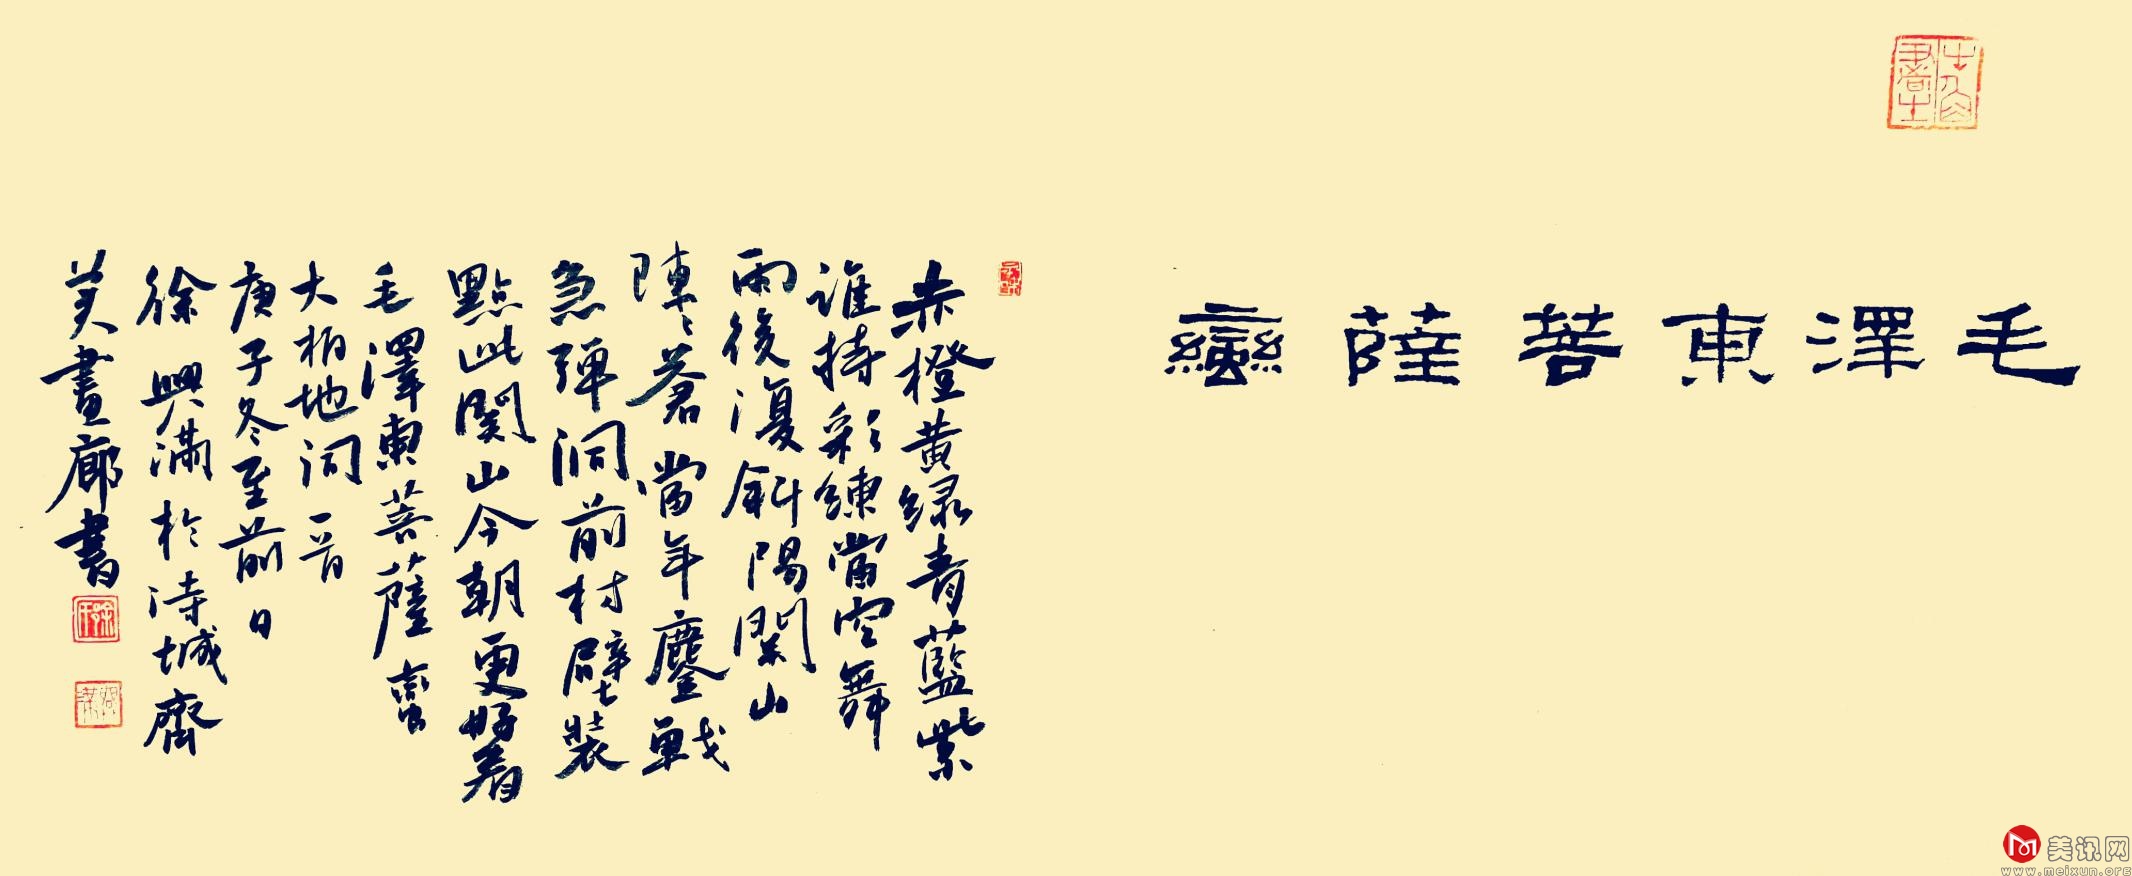 毛澤東菩薩蠻
赤橙黄绿青藍紫
谁持彩練當空舞
雨後復斜陽関山
陣〻蒼當年鏖戰
急彈洞前村壁裝
點此関山今朝更好看
毛澤東菩薩蠻
大柏地词一首
庚子冬至前日
徐興滿於诗城齊
美畫廊書
美讯网
www.meixun.org